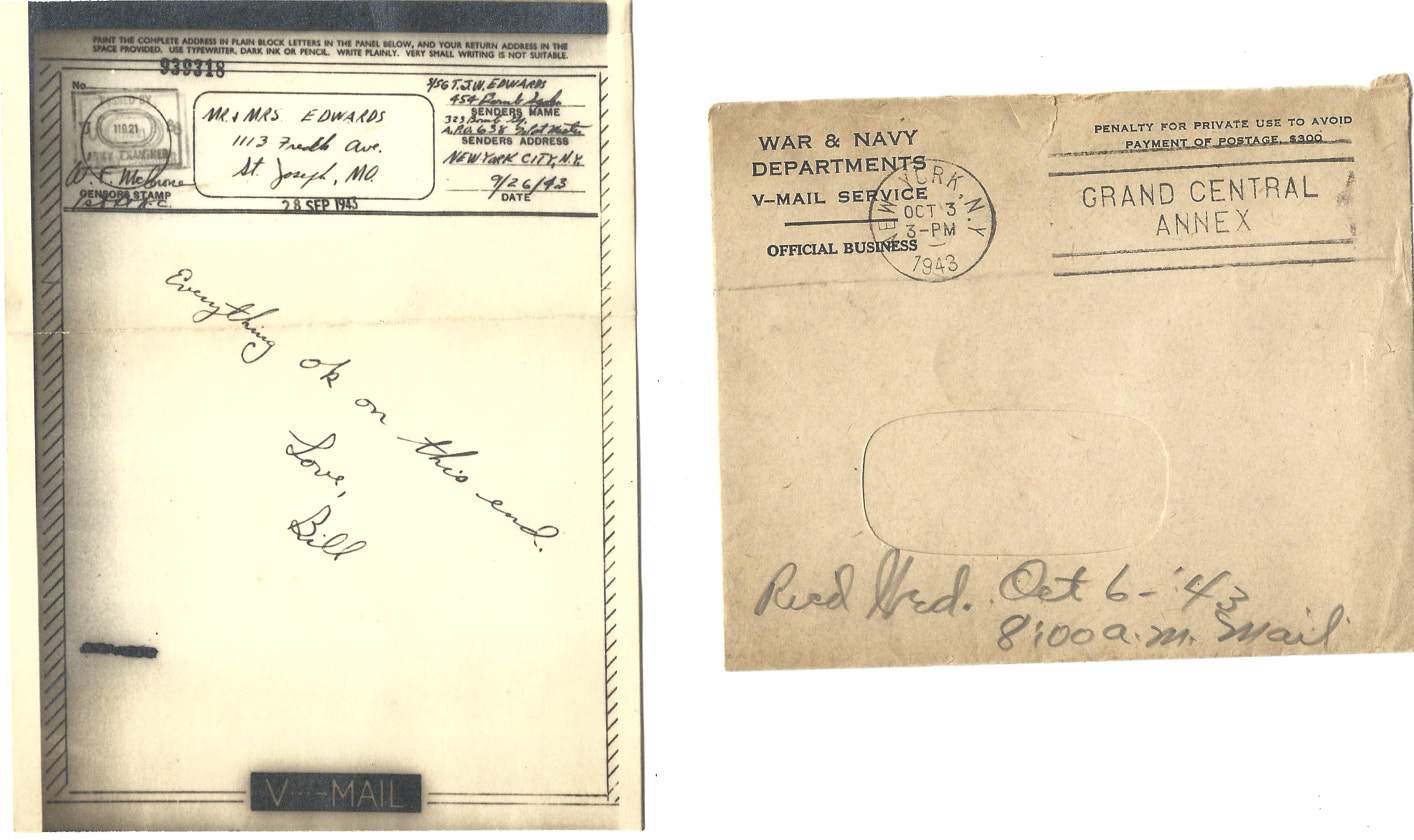 PRINT THE COMPLETE ADDRESS IN PLAIN BLOCK LETTERS IN THE PANEL BELOW, AND YOUR RETURN ADDRESS IN THE
SPACE PROVIDED. USE TYPEWRITER, DARK INK OR PENCIL. WRITE PLAINLY. VERY SMALL WRITING IS NOT SUITABLE.
939318
No.
PASSED BY
11021
ARMY EXAMINER
CENSORS STAMP
MR. & MRS EDWARDS
1113 Ave.
St. Joseph, MO.
T.J.W. EDWARDS
454 Bomb
SENDERS NAME
323 Bomb Gp.
A.P.O. 638
SENDERS ADDRESS
NEW YORK CITY, N.Y.
9/26/43
DATE
28 SEP 1943
Everything ok on this end.
Love,
Bill
V···—MAIL
WAR & NAVY
DEPARTMENTS
V—MAIL SERVICE
OFFICIAL BUSINESS
NEW YORK, N.Y.
OCT 3
3-PM
1943
PENALTY FOR PRIVATE USE TO AVOID
PAYMENT OF POSTAGE, $300
GRAND CENTRAL
ANNEX
Recd Wed. Oct 6- '43
8:00 a.m. Mail